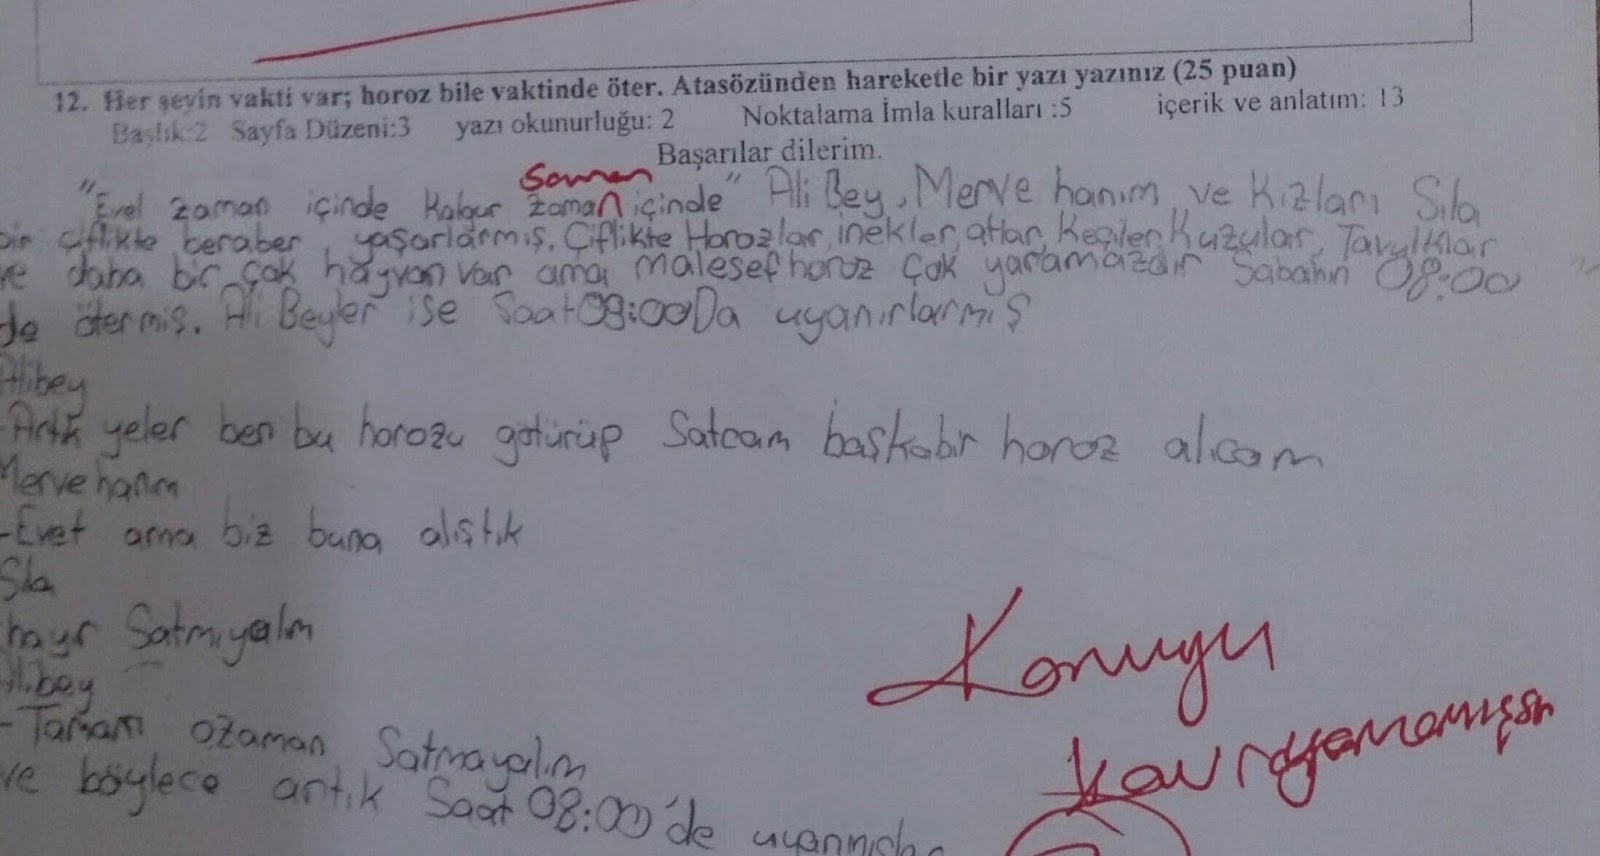 12. Her şeyin vakti var; horoz bile vaktinde öter. Atasözünden hareketle bir yazı yazınız (25 puan)
Başlık:2 Sayfa Düzeni:3 yazı okunurluğu: 2 Noktalama İmla kuralları :5 içerik ve anlatım: 13
Başarılar dilerim.
saman
"Evel zaman içinde kalbur zaman içinde" Ali Bey, Merve hanım ve Kızları Sıla
bir çiflikte beraber yaşarlarmış. Çiflikte Horozlar, inekler, atlar, Keçiler, Kuzular, Tavuklar
ve daha bir çok hayvan var ama malesef horoz çok yaramazdır Sabahın 08:00
de ötermiş. Ali Beyler ise Saat 09:00Da uyanırlarmış
Alibey
-Artık yeter ben bu horozu götürüp Satcam başkabir horoz alıcam
Merve hanım
-Evet ama biz buna alıştık
Sıla
hayır Satmıyalım
Alibey
-Tamam ozaman Satmayalım
ve böylece artık Saat 08:00'de
Konuyu
kavrayamamışsın